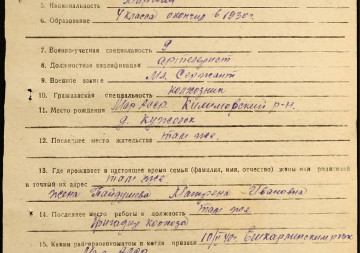 5. Национальность
6. Образование 4 класса окончил в 1930 г.
7. Военно-учетная специальность 9
8. Должностная квалификация артелерист
9. Военное звание Мл. Сержант
10. Гражданская специальность колхозник
11. Место рождения
12. Последнее место жительства там же
13. Где проживает в настоящее время семья (фамилия, имя, отчество) жены или родителей
и точный их адрес там же
жена Матрена Ивановна
14. Последнее место работы и должность там же
бригадир колхоза
15. Каким райгорвоенкоматом и когда призван